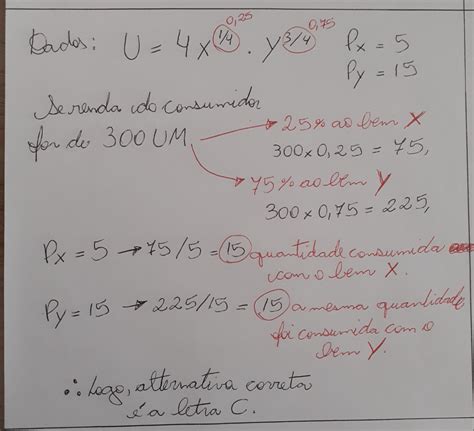 0,25 0,75
Dados: U = 4x^1/4 . y^3/4 Px = 5
Py = 15
Se renda do consumidor
for de 300 UM → 25% ao bem X
300 x 0,25 = 75,
→ 75% ao bem Y
300 x 0,75 = 225,
Px = 5 → 75/5 = 15 quantidade consumida
com o bem X.
Py = 15 → 225/15 = 15 a mesma quantidade
foi consumida com o
bem Y.
∴ Logo, alternativa correta
é a letra C.